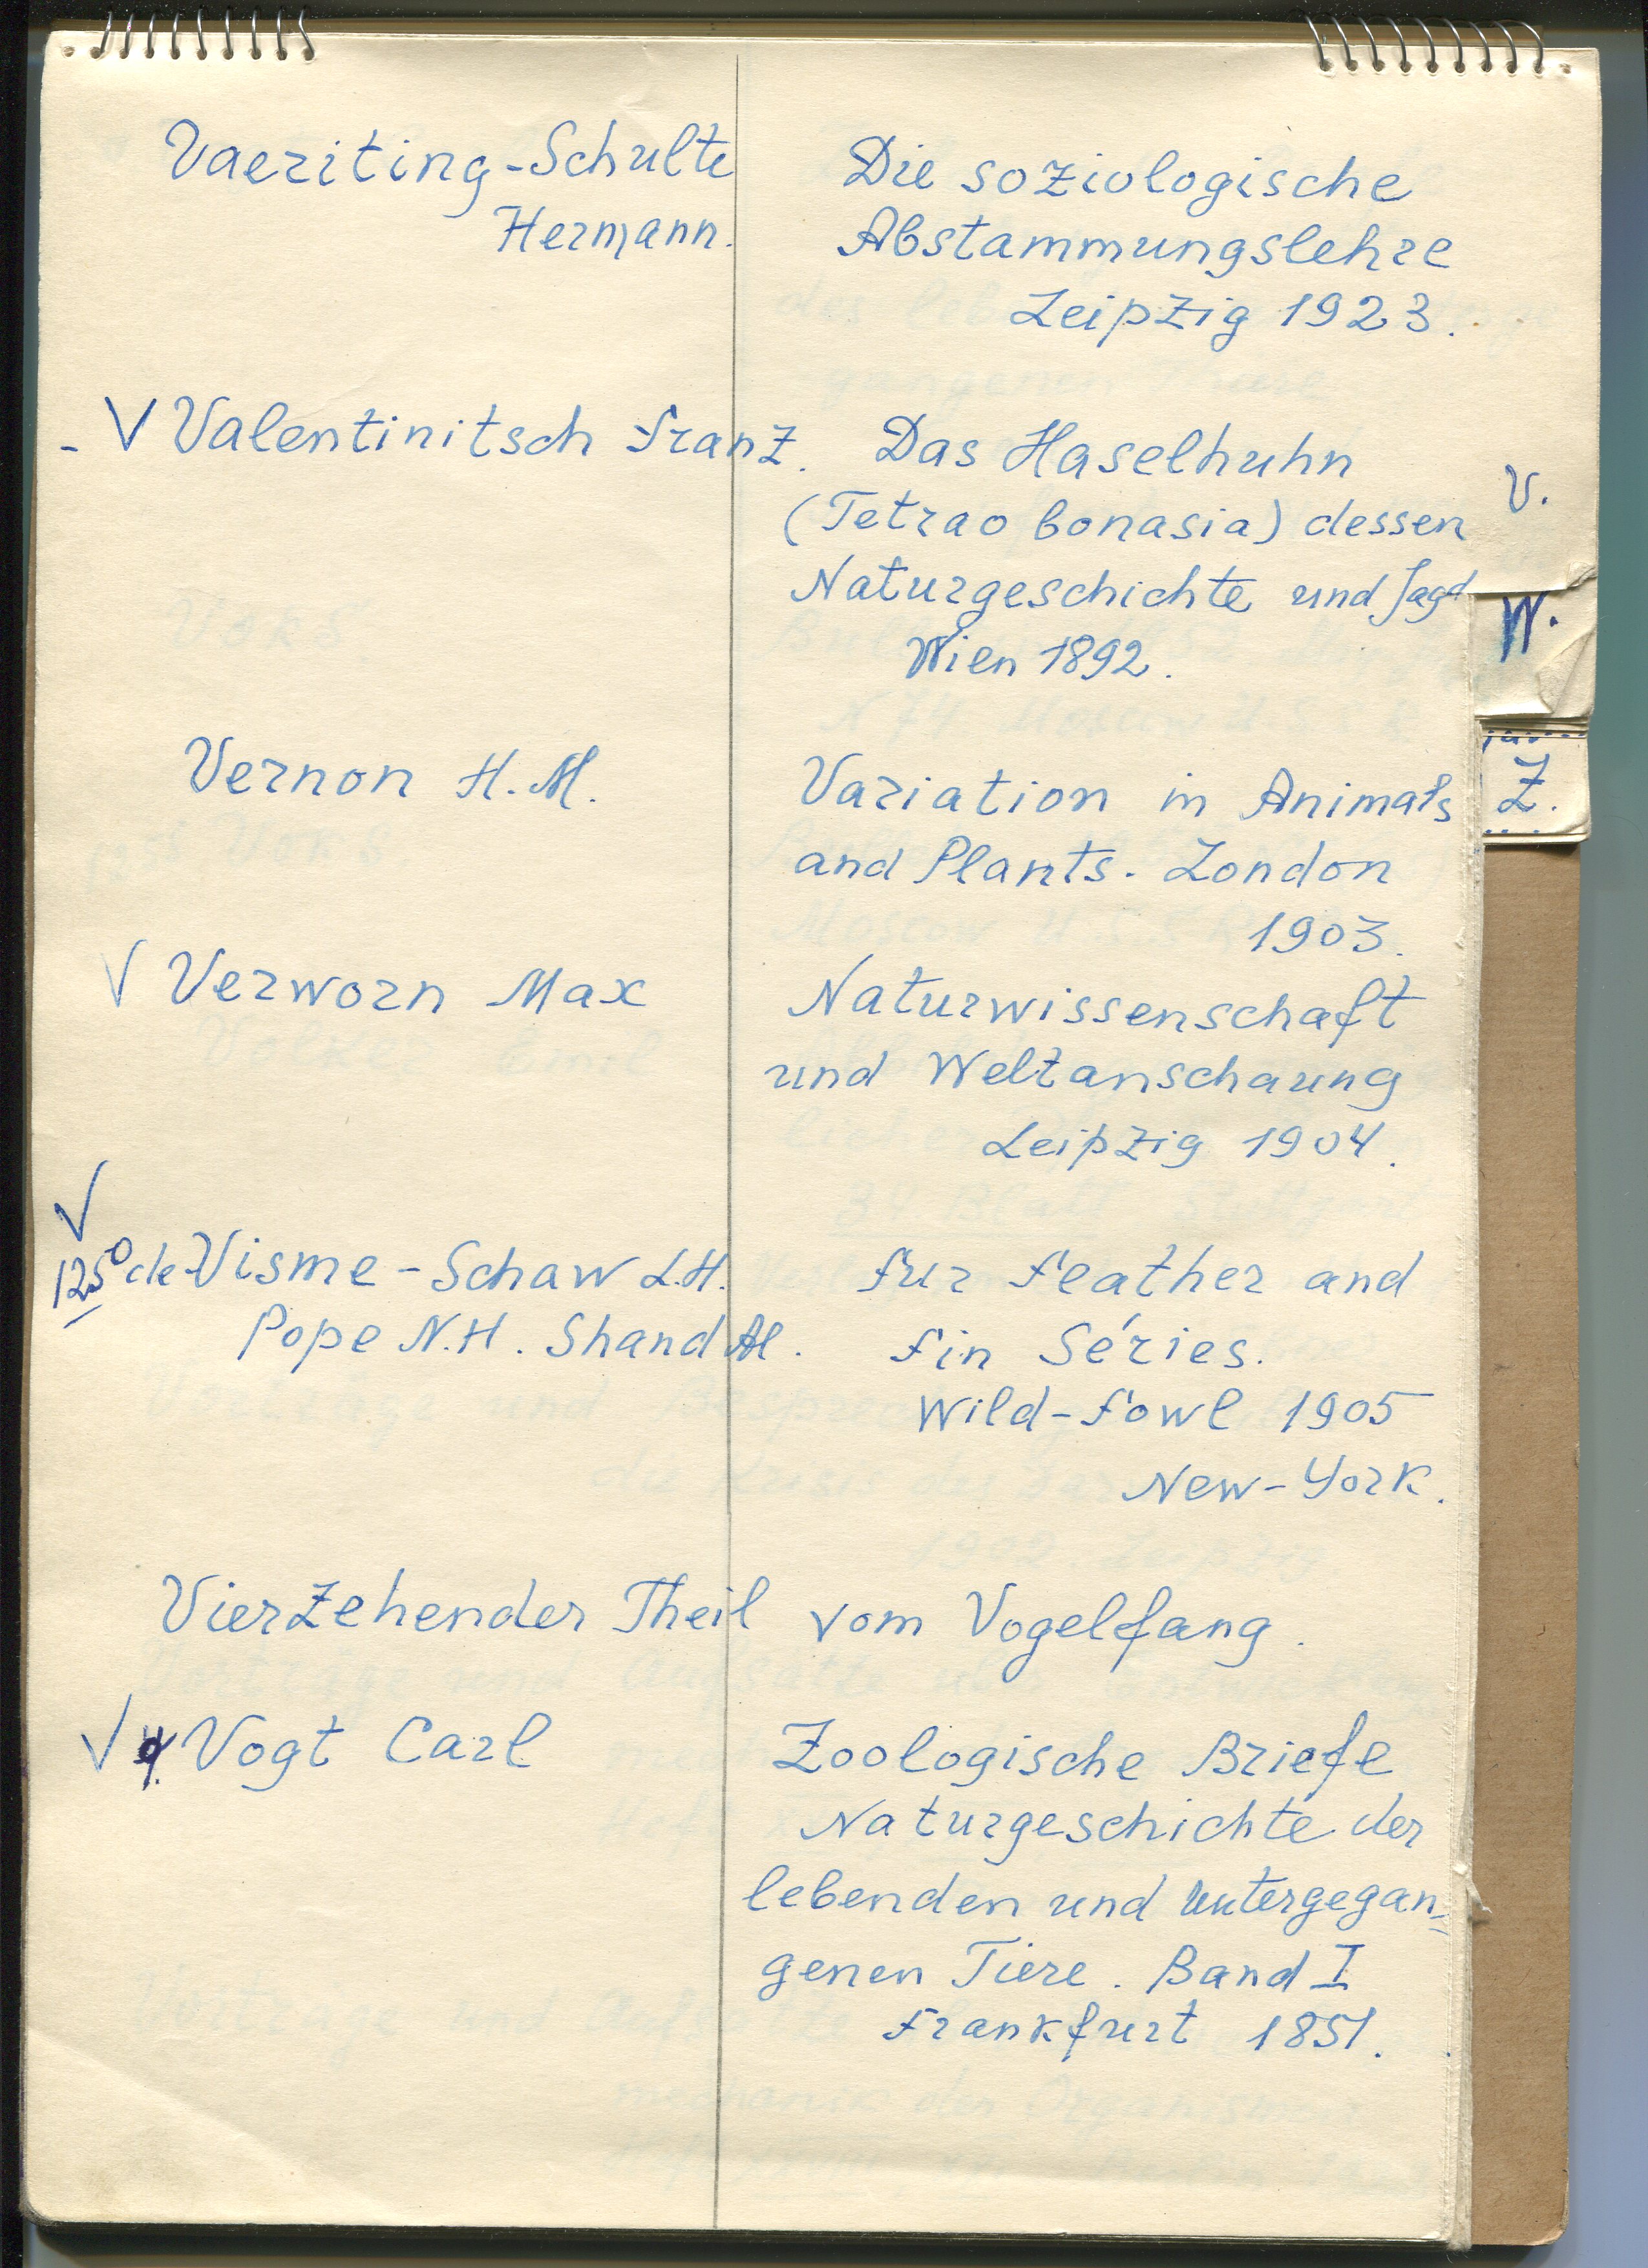 Vaeriting-Schulte
Hermann.
Die soziologische
Abstammungslehre
Leipzig 1923.
- V Valentinitsch Franz.
Das Haselhuhn
(Tetrao bonasia) dessen
Naturgeschichte und Jagd
Wien 1892.
V.
W.
Z.
Vernon H. M.
Variation in Animals
and Plants. London
1903.
√ Verworn Max
Naturwissenschaft
und Weltanschaung
Leipzig 1904.
√
125° de-Visme-Schaw L.H.
Pope N.H. Shand Al.
Fur Feather and
Fin Séries.
Wild-Fowl 1905
New-York.
Vierzehender Theil vom Vogelfang.
√ Vogt Carl
Zoologische Briefe
Naturgeschichte der
lebenden und untergegan=
genen Tiere. Band I
Frankfurt 1851.